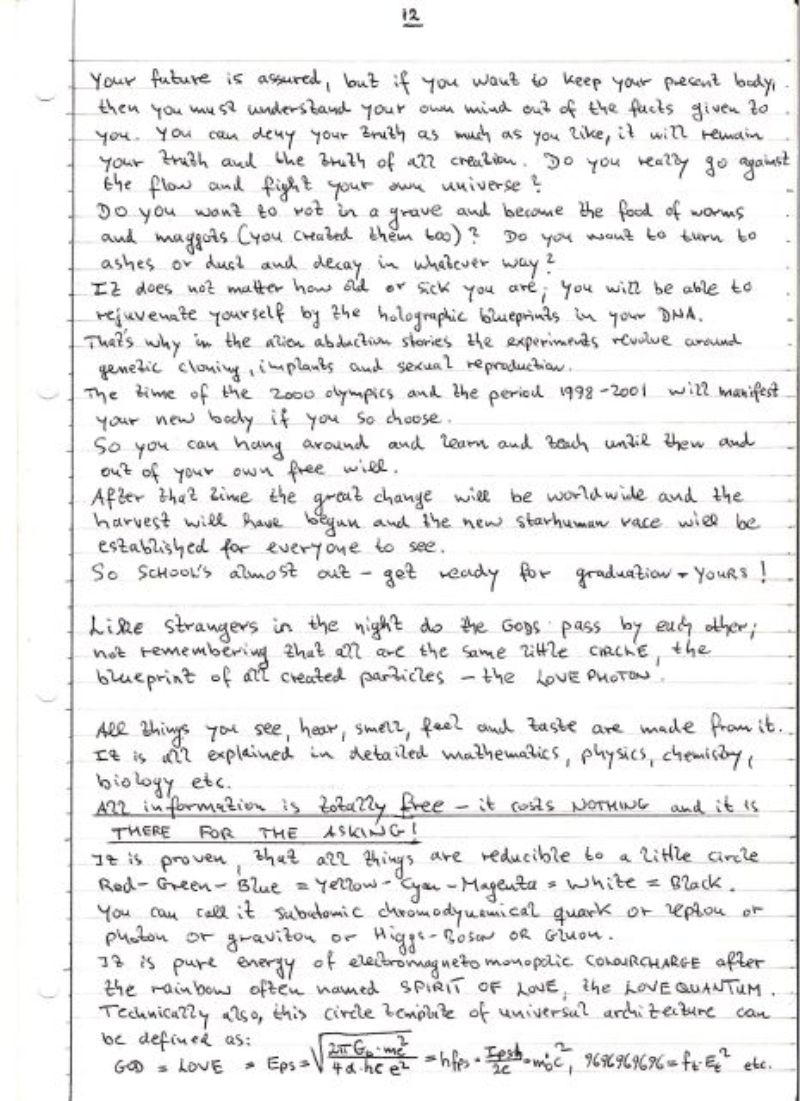 12
Your future is assured, but if you want to keep your present body,
then you must understand your own mind out of the facts given to
you. You can deny your truth as much as you like, it will remain
your truth and the truth of all creation. Do you really go against
the flow and fight your own universe?
Do you want to rot in a grave and become the food of worms
and maggots (you created them too)? Do you want to turn to
ashes or dust and decay in whatever way?
It does not matter how old or sick you are; you will be able to
rejuvenate yourself by the holographic blueprints in your DNA.
That's why in the alien abduction stories the experiments revolve around
genetic cloning, implants and sexual reproduction.
The time of the 2000 olympics and the period 1998-2001 will manifest
your new body if you so choose.
So you can hang around and learn and teach until then and
out of your own free will.
After that time the great change will be worldwide and the
harvest will have begun and the new starhuman race will be
established for everyone to see.
So SCHOOL'S almost out - get ready for graduation - YOURS!
Like strangers in the night do the GODS pass by each other;
not remembering that all are the same little CIRCLE, the
blueprint of all created particles - the LOVE PHOTON.
All things you see, hear, smell, feel and taste are made from it.
It is all explained in detailed mathematics, physics, chemistry,
biology etc.
All information is totally free - it costs NOTHING and it is
THERE FOR THE ASKING!
It is proven, that all things are reducible to a little circle
Red-Green-Blue = Yellow-Cyan-Magenta = White = Black.
You can call it subatomic chromodynamical quark or lepton or
photon or graviton or Higgs-Boson OR Gluon.
It is pure energy of electromagnetomonopolic COLOURCHARGE after
the rainbow often named SPIRIT OF LOVE, the LOVE QUANTUM.
Technically also, this circle template of universal architecture can
be defined as:
GOD = LOVE = Eps = = hfps = 9696969696 = etc.